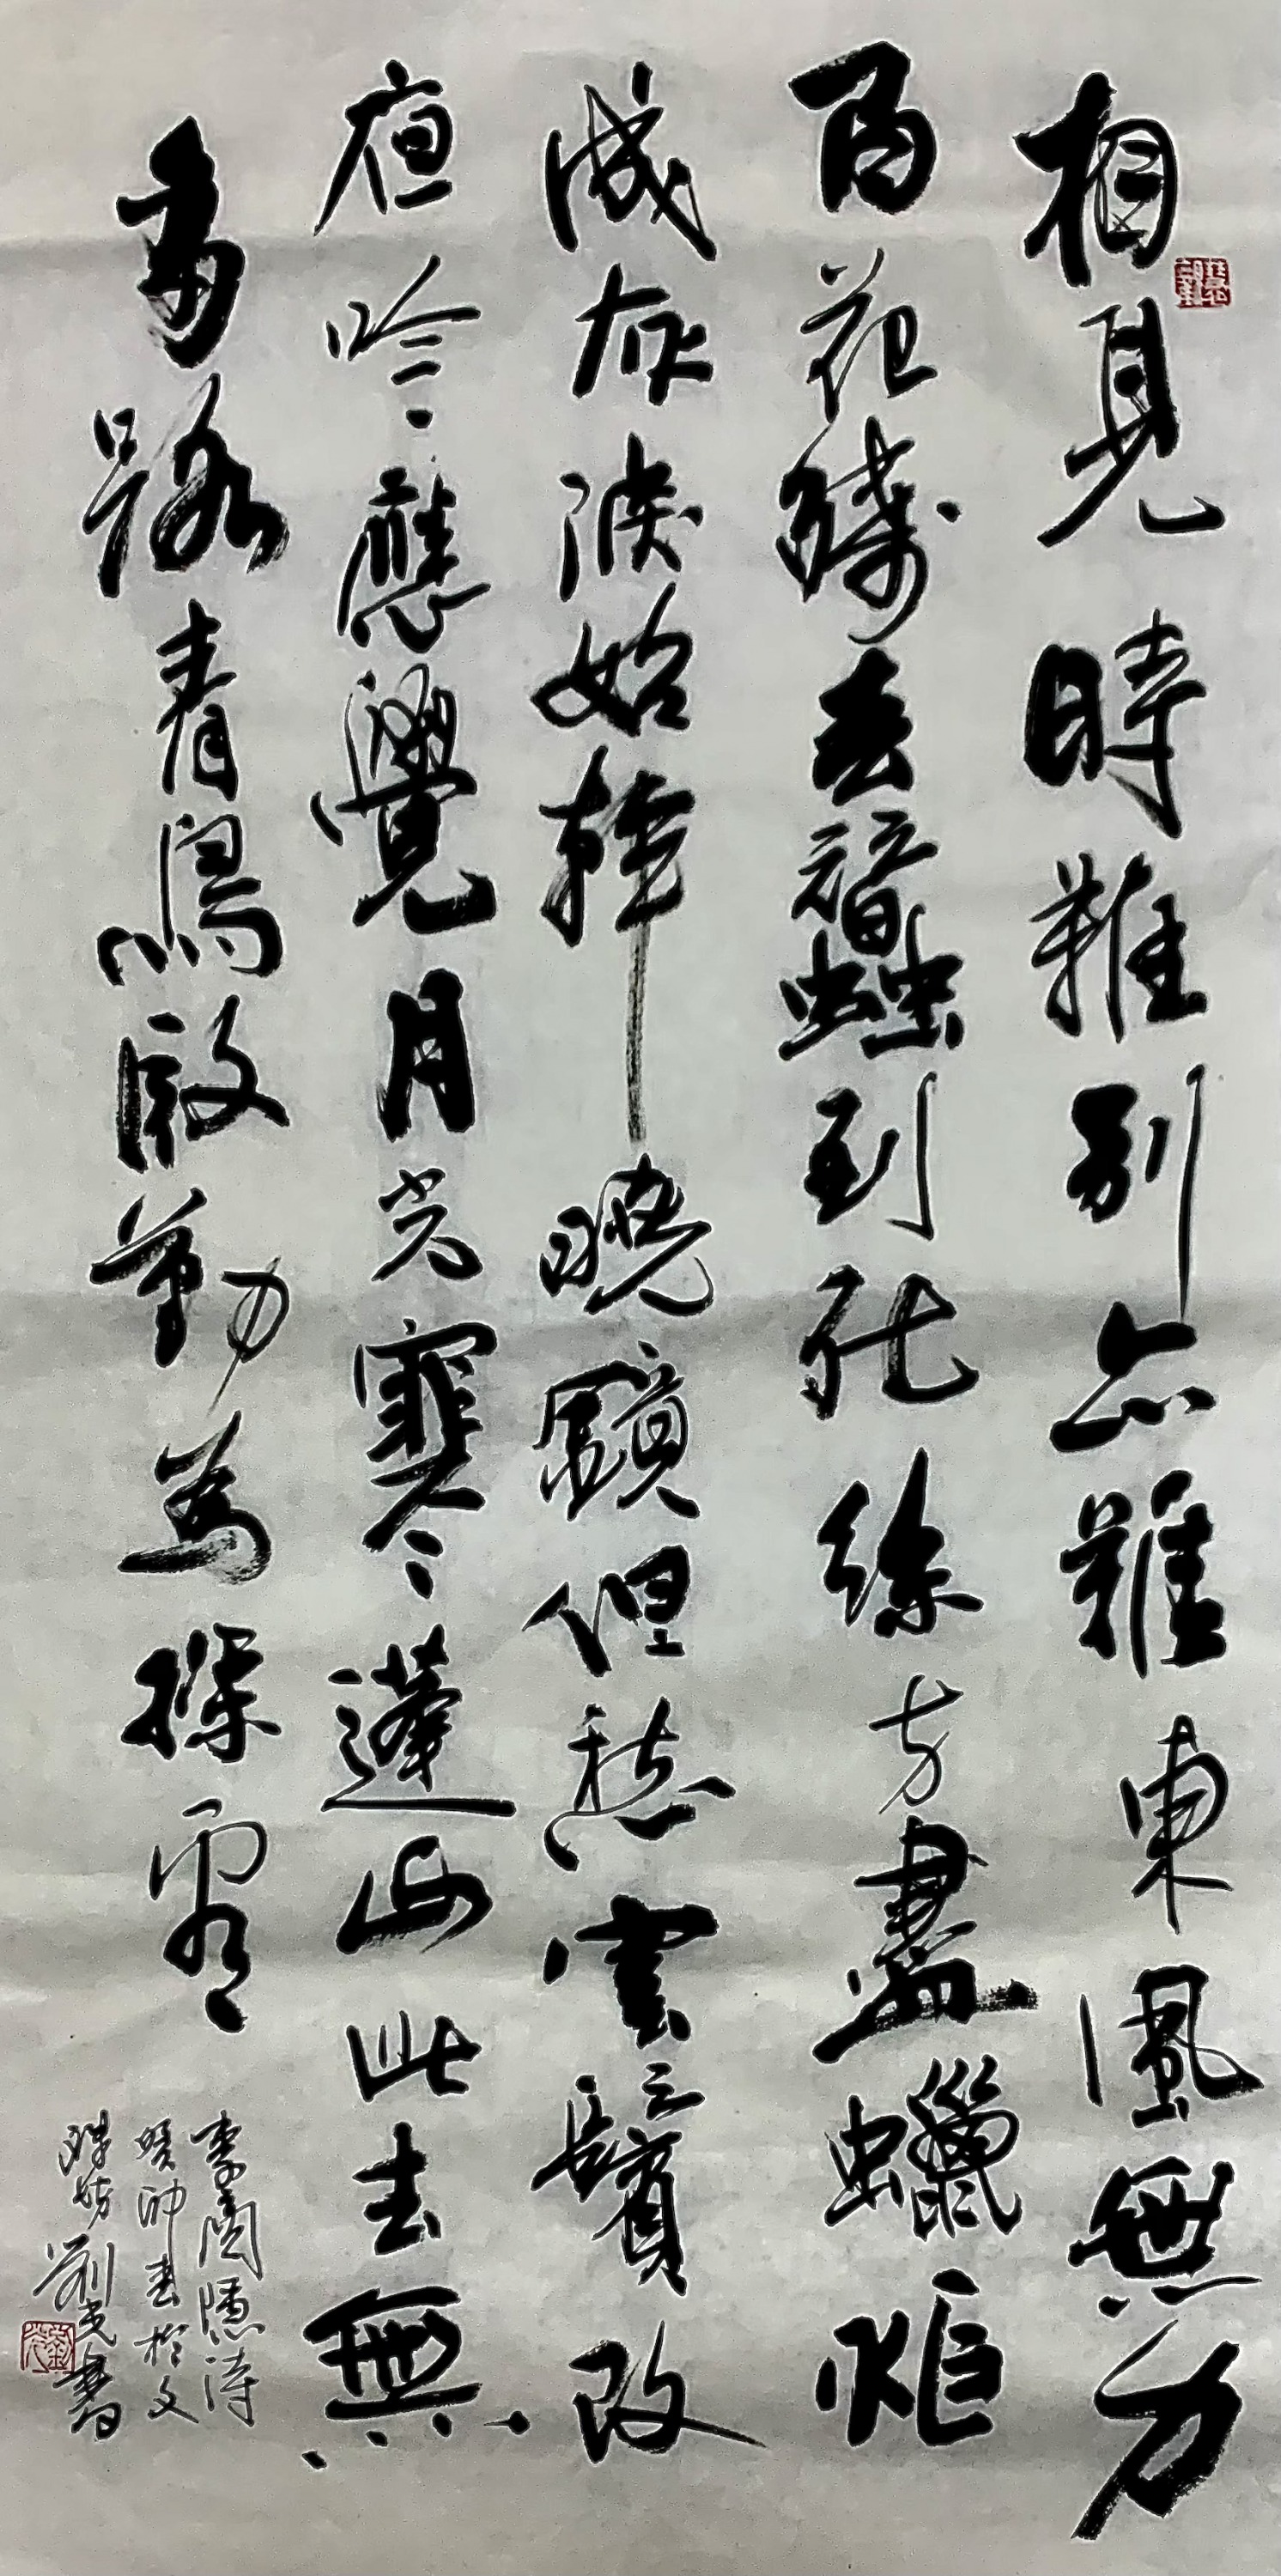 相見時難別亦難東風無力
百花殘春蠶到死絲方盡蠟炬
成灰淚始幹曉鏡但愁雲鬢改
夜吟應覺月光寒蓬山此去無
多路青鳥殷勤為探看
李商隱詩
癸卯春於文
坊劉光書